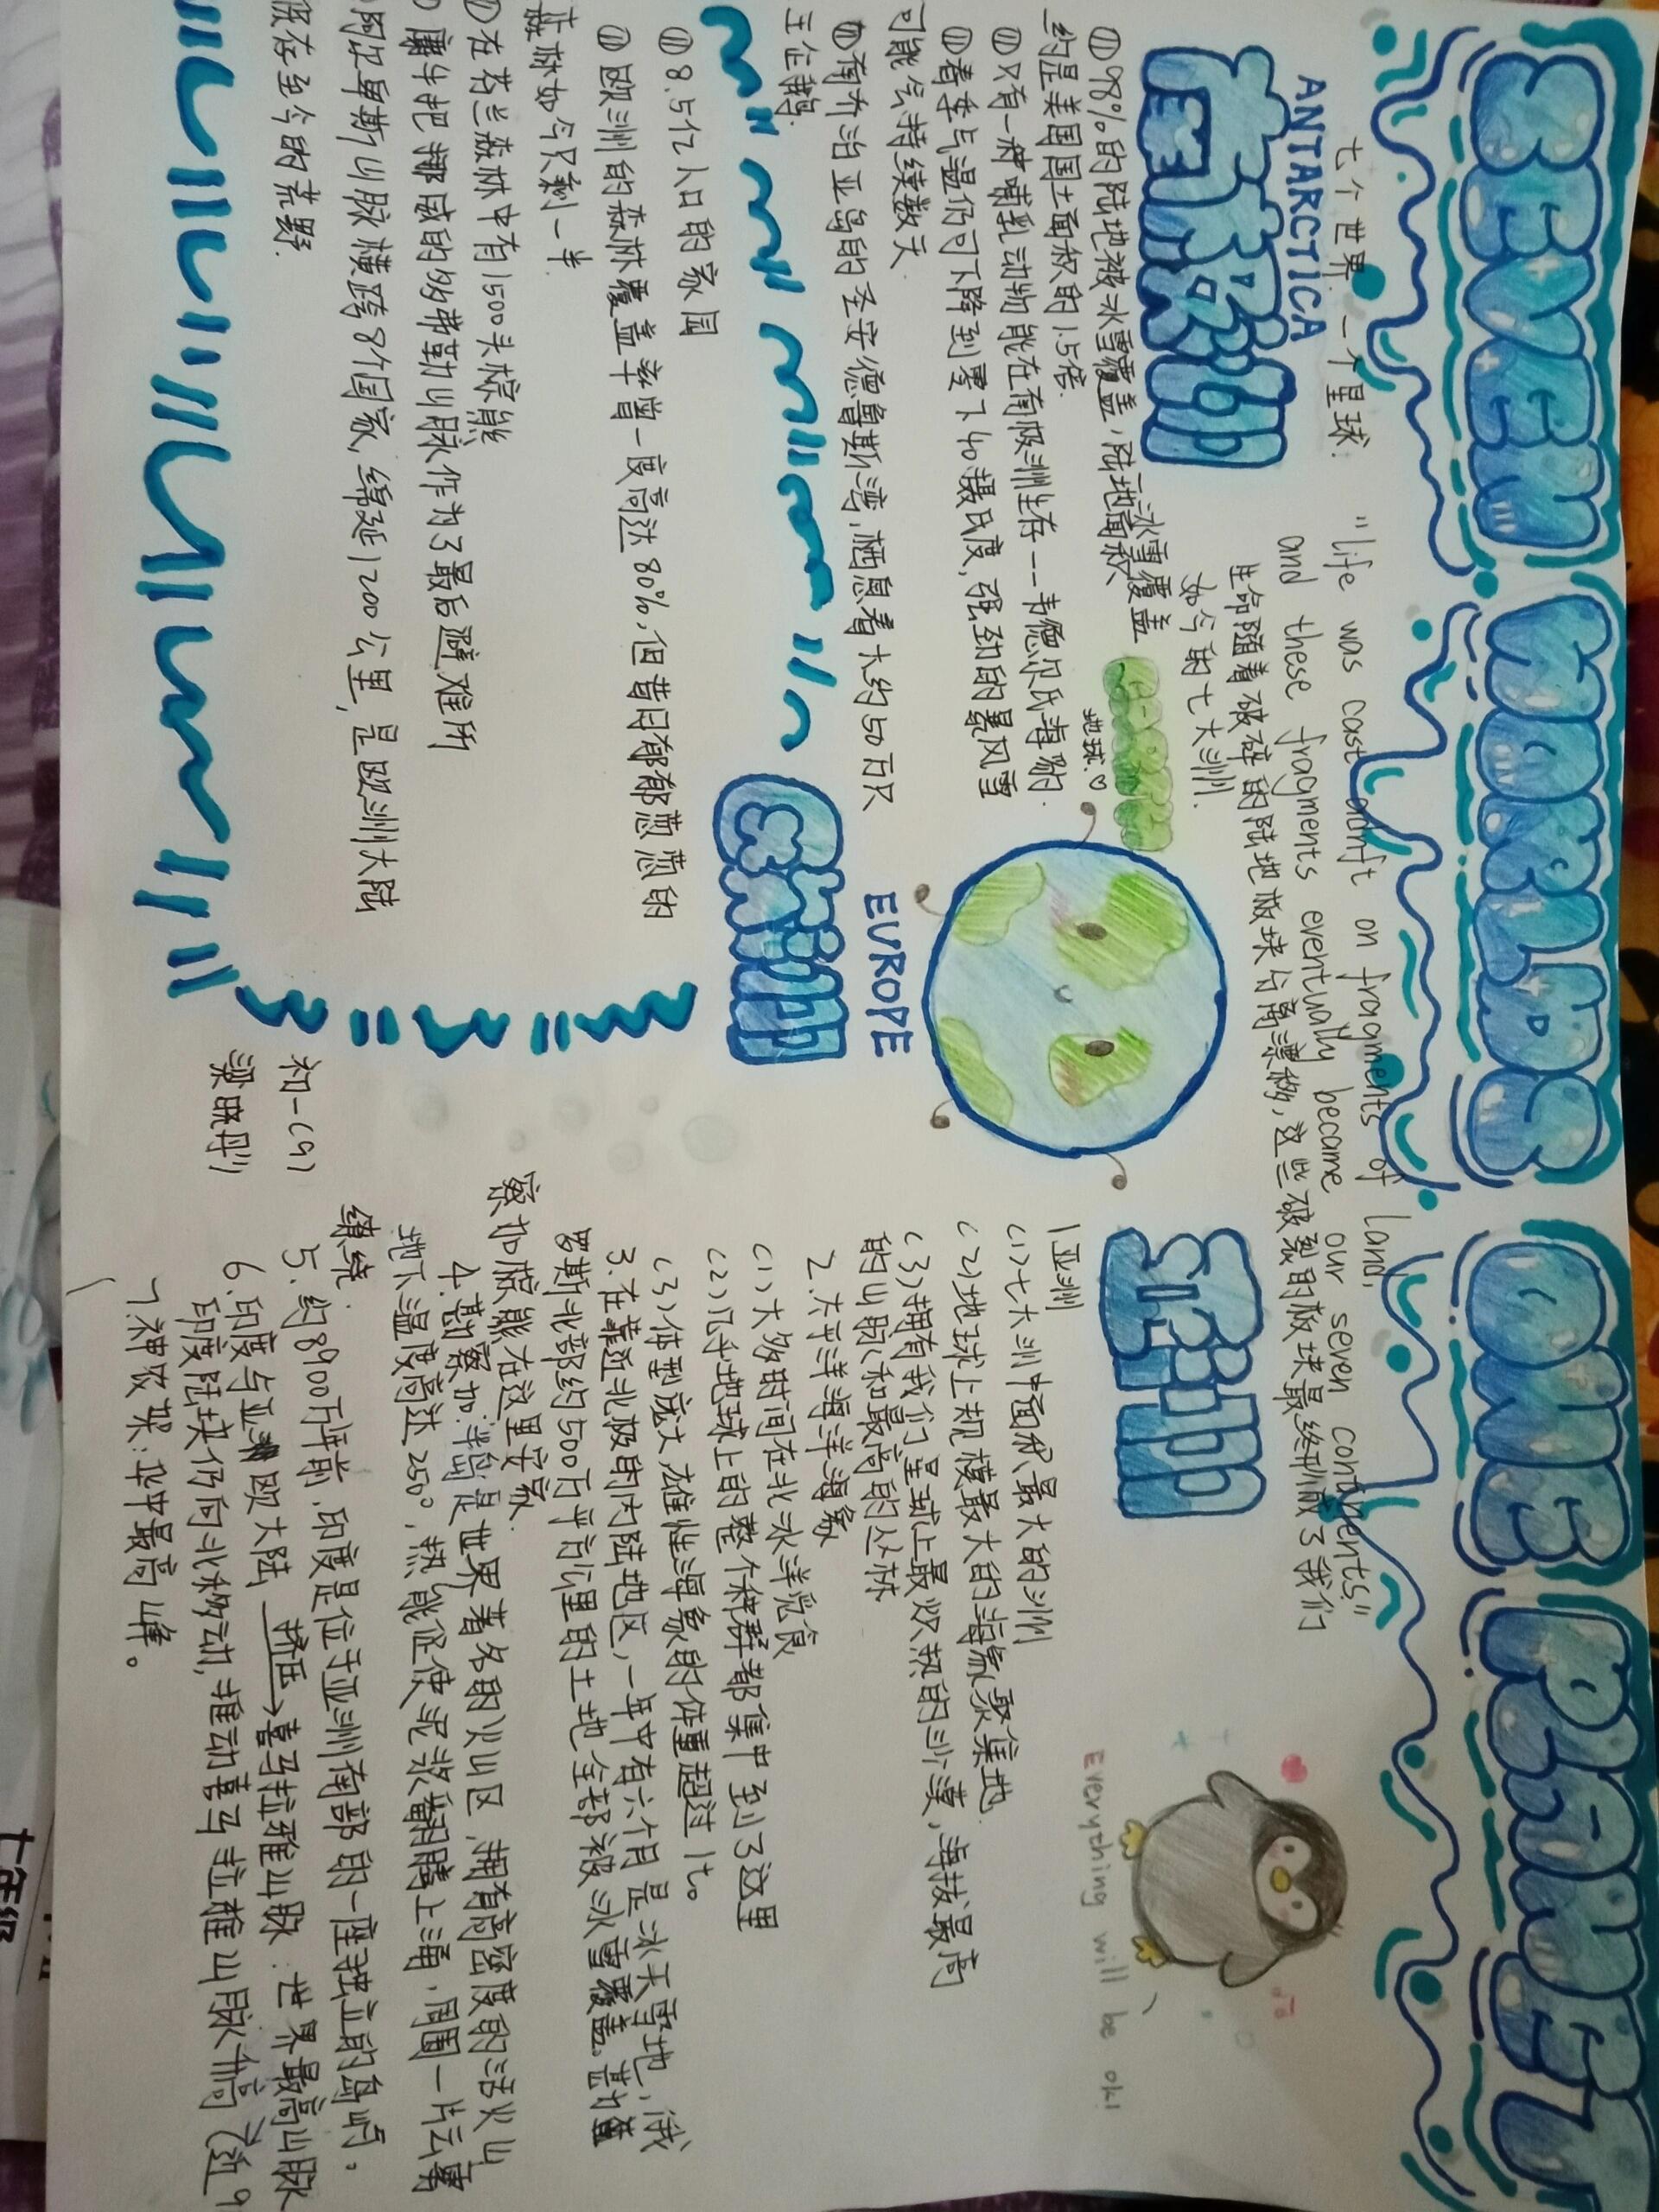 SEVEN WORLDS ONE PLANET
七个世界 一个星球
"Life was cast adrift on fragments of land,
and these fragments eventually became our seven continents"
生命随着破碎的陆地板块分离漂移,这些破裂的板块最终形成了我们
如今的七大洲.
ANTARCTICA
南极洲
⑪98%的陆地被冰雪覆盖,陆地面积、冰雪覆盖
约是美国国土面积的1.5倍.
⑪只有一种哺乳动物能在南极洲生存--韦德尔氏海豹.
⑪春季气温仍可下降到零下40摄氏度,强劲的暴风雪
可能会持续数天
⑪南乔治亚岛的圣安德鲁斯湾,栖息着大约50万只
王企鹅.
地球.♡
EUROPE
欧洲
⑪8.5亿人口的家园
⑪欧洲的森林覆盖率曾一度高达80%,但昔日郁郁葱葱的
森林如今只剩一半.
在芬兰森林中有1500头棕熊
牛把挪威的多弗勒山脉作为了最后避难所
阿巴阡斯山脉横跨8个国家,绵延1200公里,是欧洲大陆
保存至今的荒野.
初一(9)
梁晓彤
亚洲
1亚洲
(1)七大洲中面积最大的洲
(2)地球上规模最大的海象聚集地.
(3)拥有我们星球上最炎热的沙漠,海拔最高
的山脉和最高的丛林
2.太平洋海洋海象
(1)大多时间在北冰洋觅食
(2)几乎地球上的整个种群都集中到了这里
(3)体型庞大,雄性海象的体重超过1t。
3.在靠近北极的内陆地区,一年中有六个月是冰天雪地,俄
罗斯北部约500万平方公里的土地全部被冰雪覆盖.甚
察加棕熊在这里安家.
4.堪察加半岛是世界著名的火山区,拥有高密度的活火山
地下温度高达250°,热能促使泥浆翻腾上涌,周围一片云雾
缭绕.
5.约8900万年前,印度是位于亚洲南部的一座独立的岛屿。
6.印度与亚欧大陆 挤压→喜马拉雅山脉:世界最高山脉
印度陆块仍向北移动,推动喜马拉雅山脉升高
7.神农架:华中最高峰。
Everything will be ok!